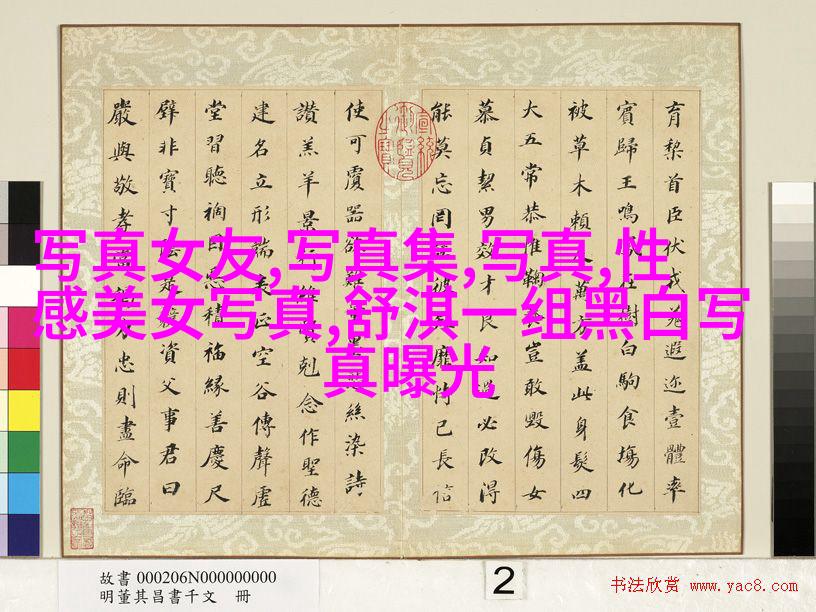 写真女友,写真集,写真,性
感美女写真,舒淇一组黑白写
真曝光
育黎首臣伏戎羌遐迩壹體率
賓歸王鳴在樹白駒食場化
被草木賴萬方蓋此身髮四
大五常恭惟鞠養豈敢毀傷女
慕貞絜男效才良知過必改得
能莫忘罔彼靡恃己長信
使可覆器欲難墨絲染詩
讚羔羊景行維賢剋念作聖德
建名立形端表正空谷傳聲虛
堂習聽禍因惡積福緣善慶尺
璧非寶寸陰是資父事君曰
嚴與敬孝當力忠則盡命臨
故書 000206N000000000
明董其昌書千文 冊
2
书法欣赏 www.yac8.com